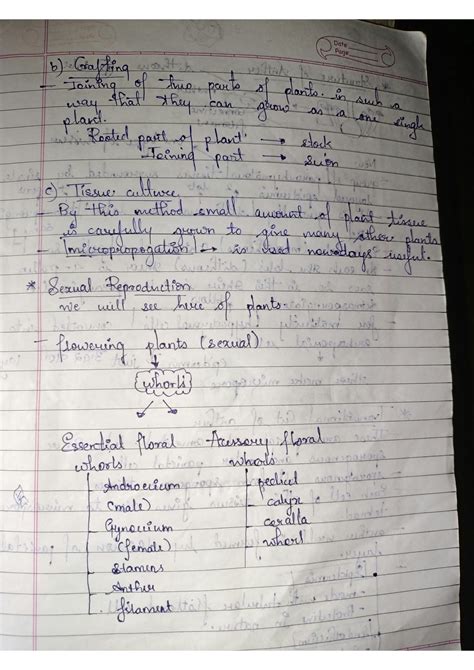 Date
Page
b) Grafting
- Joining of two parts of plants. in such a
way that they can grow as a one singh
plant.
Rooted part of plant → stock
Joining part → scion
c) Tissue culture
- By this method small amount of plant tissue
is carefully grown to give many other plants
- Imicropropogation → is used nowdays useful.
* Sexual Reproduction
we will see here of plants
- flowering plants (sexual)
whorls
Essential floral Acessory floral
whorls whorls
Androecium pedicel
(male) calyx
Gynoecium coralla
(female) whorl
stamens
Anther
filament